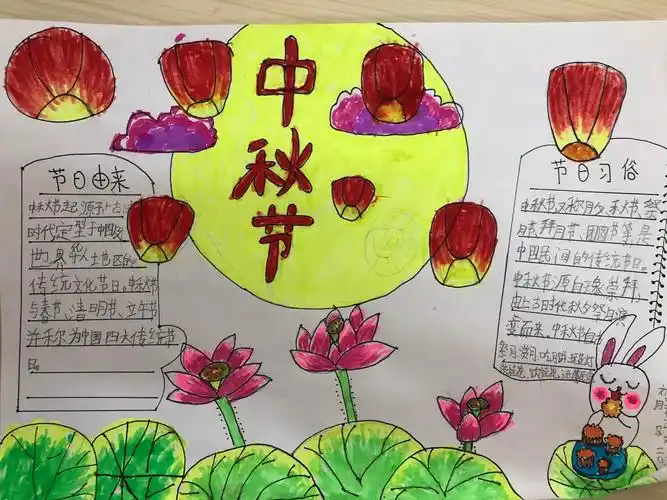 中秋节
节日由来
中秋节起源于上古
时代定型于中国
世界华人士地区的
传统文化节日。中秋节
与春节、清明节、立午节
并称为中国四大传统节
日。
节日习俗
中秋节又称月夕、秋节、祭
月节、拜月节、团圆节等是
中国民间的传统节日。
中秋节源自天象崇拜,
由上古时代秋夕祭月演
变而来,中秋节自
祭月、赏月、吃月饼、玩花灯
赏桂花、饮桂花